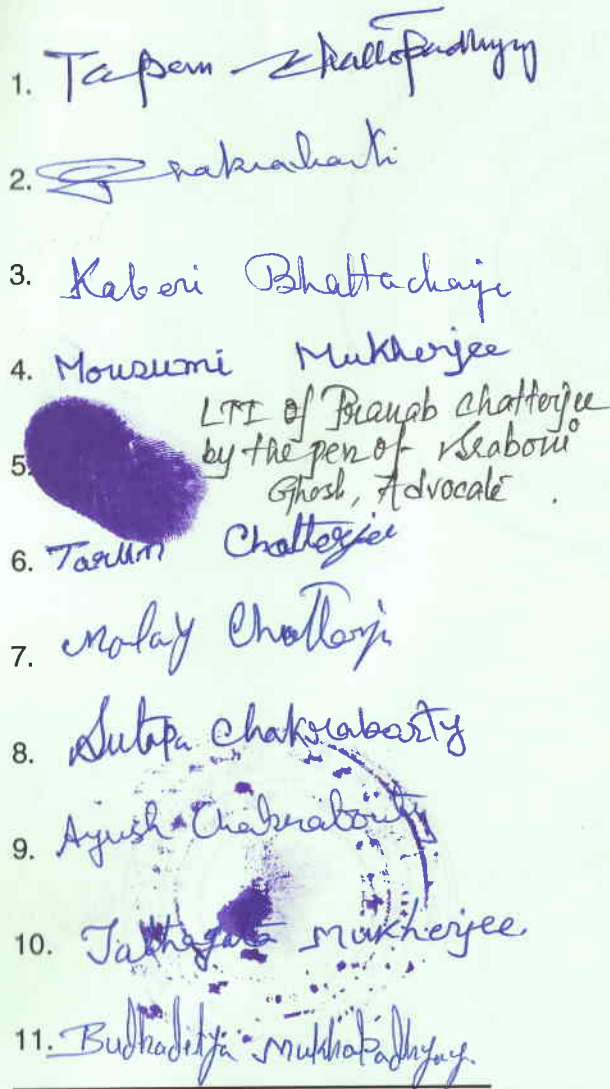 1. Tapan Chattopadhyay
2. Chakrabarti
3. Kaberi Bhattacharje
4. Mousumi Mukherjee
LTI of Pranab Chatterjee
by the pen of Sraboni
5. Ghosh, Advocate.
6. Tarun Chatterjee
7. Molay Chatterji
8. Sutapa Chakrabarty
9. Ayush Chakraborty
10. Tathagata Mukherjee
11. Budhaditya Mukhopadhyay.